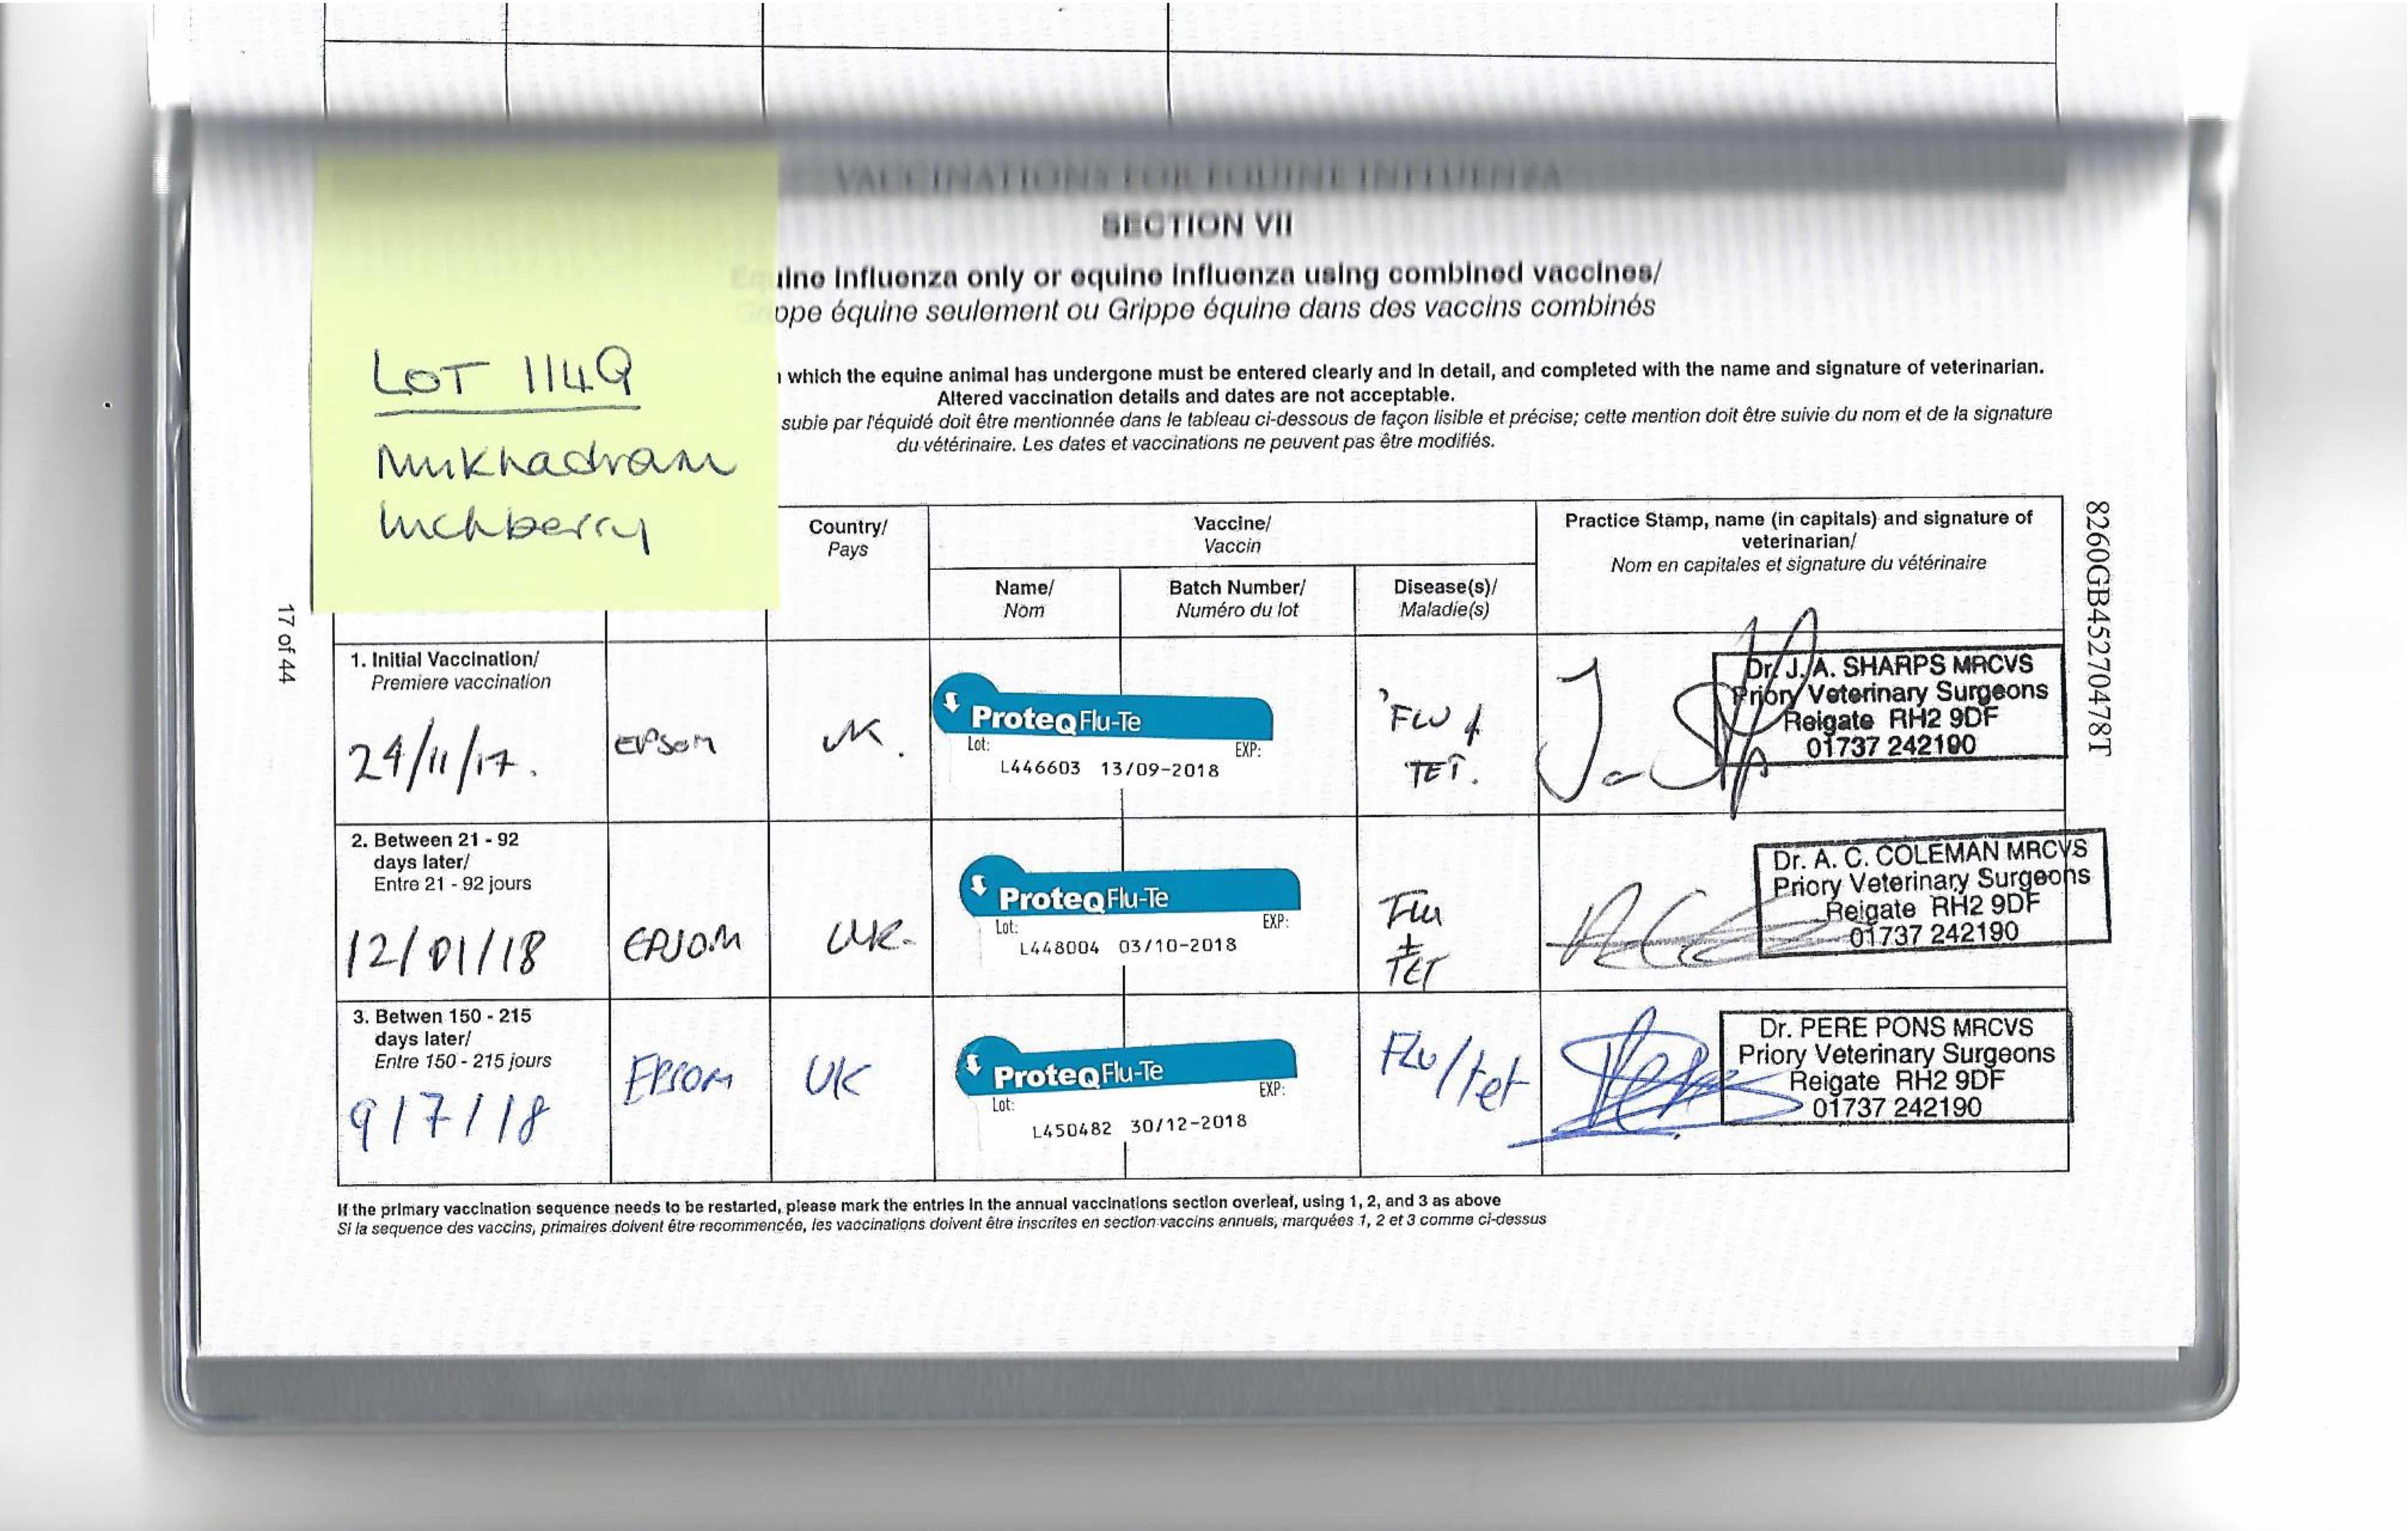 VACCINATIONS FOR EQUINE INFLUENZA
SECTION VII
Equine Influenza only or equine influenza using combined vaccines/
ppe équine seulement ou Grippe équine dans des vaccins combinés
LOT 114Q
Mukhadram
Inchberry
which the equine animal has undergone must be entered clearly and in detail, and completed with the name and signature of veterinarian.
Altered vaccination details and dates are not acceptable.
subie par l'équidé doit être mentionnée dans le tableau ci-dessous de façon lisible et précise; cette mention doit être suivie du nom et de la signature
du vétérinaire. Les dates et vaccinations ne peuvent pas être modifiés.
Country/
Pays
Vaccine/
Vaccin
Name/
Nom
Batch Number/
Numéro du lot
Disease(s)/
Maladie(s)
Practice Stamp, name (in capitals) and signature of
veterinarian/
Nom en capitales et signature du vétérinaire
8260GB45270478T
17 of 44
1. Initial Vaccination/
Premiere vaccination
24/11/17.
EPSOM
UK.
ProteqFlu-Te
Lot: EXP:
L446603 13/09-2018
'FLU &
TET.
Dr. J. A. SHARPS MRCVS
Priory Veterinary Surgeons
Reigate RH2 9DF
01737 242190
2. Between 21 - 92
days later/
Entre 21 - 92 jours
12/01/18
EPSOM
UK.
ProteqFlu-Te
Lot: EXP:
L448004 03/10-2018
Flu
+
TET
Dr. A. C. COLEMAN MRCVS
Priory Veterinary Surgeons
Reigate RH2 9DF
01737 242190
3. Betwen 150 - 215
days later/
Entre 150 - 215 jours
9/7/18
EPSOM
UK
ProteqFlu-Te
Lot: EXP:
L450482 30/12-2018
FLU/tet
Dr. PERE PONS MRCVS
Priory Veterinary Surgeons
Reigate RH2 9DF
01737 242190
If the primary vaccination sequence needs to be restarted, please mark the entries in the annual vaccinations section overleaf, using 1, 2, and 3 as above
Si la sequence des vaccins, primaires doivent être recommencée, les vaccinations doivent être inscrites en section vaccins annuels, marquées 1, 2 et 3 comme ci-dessus